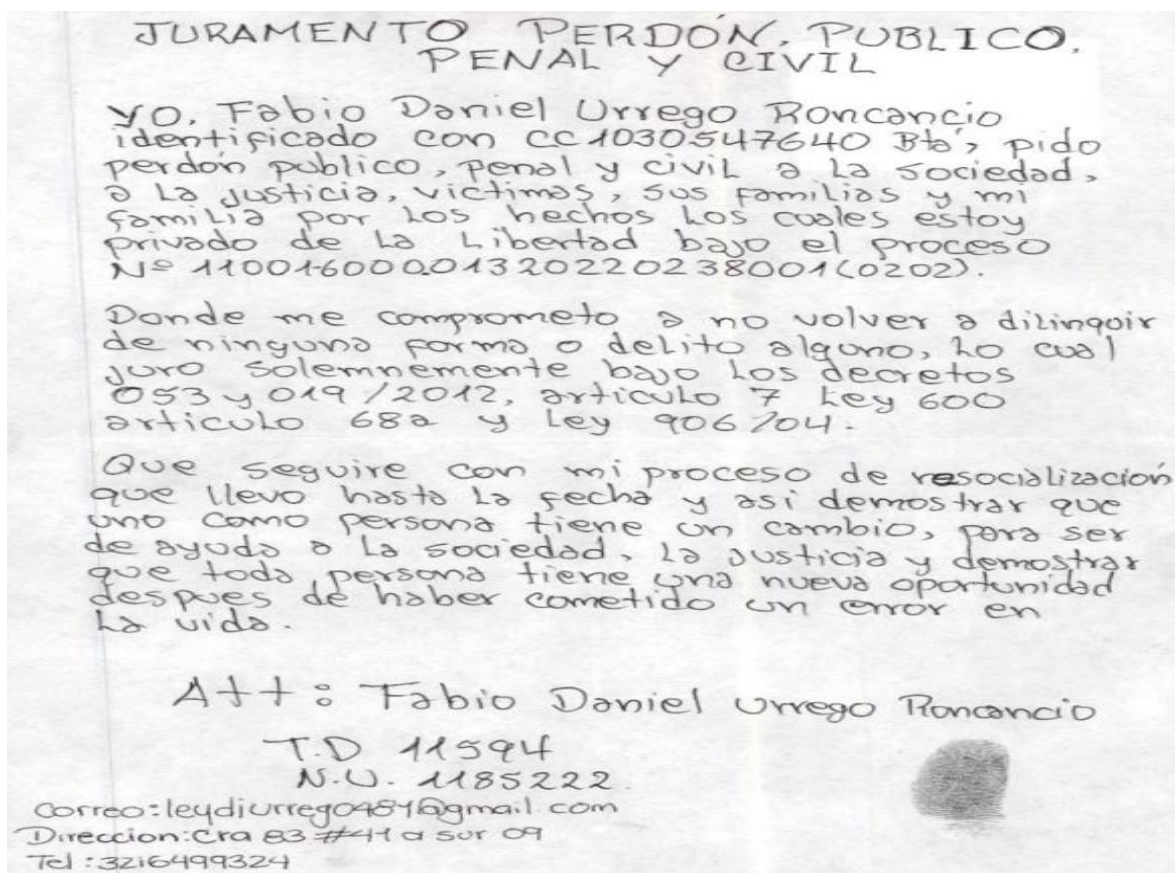 JURAMENTO PERDÓN, PUBLICO,
PENAL Y CIVIL
YO, Fabio Daniel Urrego Roncancio
identificado con CC 1030547640 Bta, pido
perdón publico, penal y civil a la sociedad,
a la justicia, victimas, sus familias y mi
familia por los hechos los cuales estoy
privado de la Libertad bajo el proceso
Nº 11001600001320220238001(0202).
Donde me comprometo a no volver a dilinquir
de ninguna forma o delito alguno, lo cual
juro solemnemente bajo los decretos
053 y 019/2012, articulo 7 Ley 600
articulo 68a y Ley 906/04.
Que seguire con mi proceso de resocialización
que llevo hasta la fecha y asi demostrar que
uno como persona tiene un cambio, para ser
de ayuda a la sociedad, la justicia y demostrar
que toda persona tiene una nueva oportunidad
despues de haber cometido un error en
la vida.
Att: Fabio Daniel Urrego Roncancio
T.D 11594
N.U. 1185222
Correo: leydiurrego481@gmail.com
Direccion: Cra 83 #41 a sur 09
Tel: 3216499324